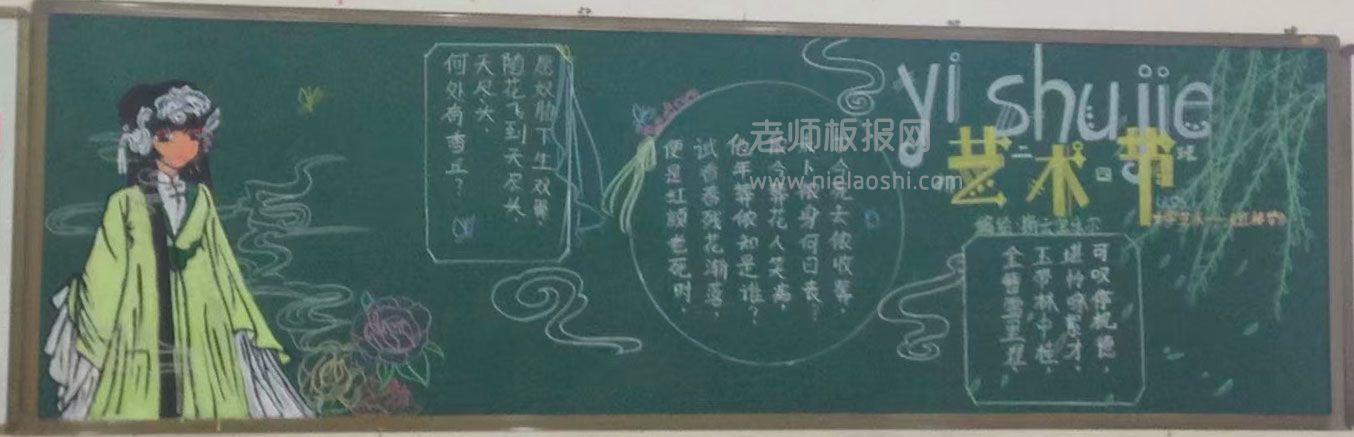 yi shu jie
艺术节
二四班
愿奴胁下生双翼、
随花飞到天尽头
天尽头、
何处有香丘？
今死去侬收葬，
卜侬身何日丧？
侬今葬花人笑痴，
他年葬侬知是谁？
试看春残花渐落，
便是红颜也死时，
可叹停机德，
堪怜咏絮才，
玉带林中挂，
金簪雪里埋
老师板报网
www.nielaoshi.com